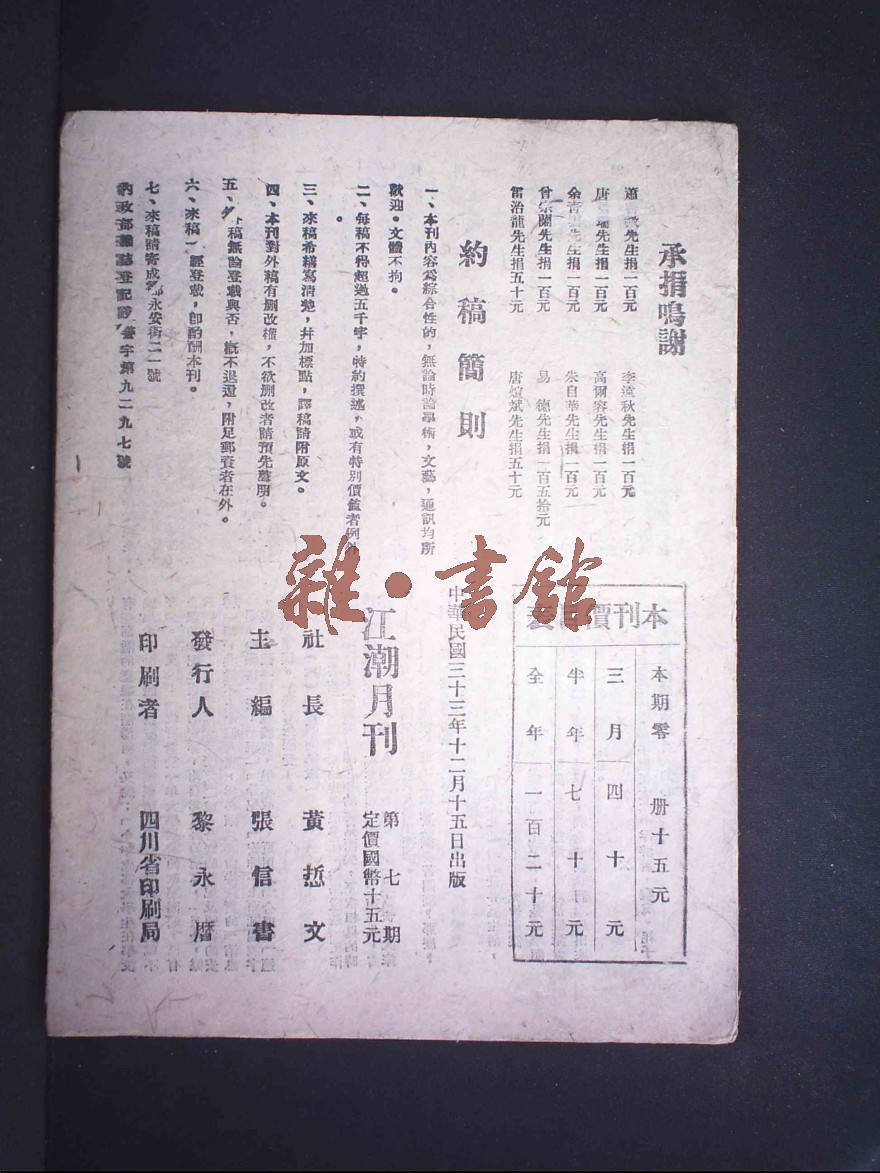 承捐鳴謝
蕭 先生捐一百元 李漢秋先生捐一百元
唐 瑞先生捐一百元 高爾容先生捐一百元
余 先生捐一百元 朱自華先生捐一百元
曾 蘭先生捐一百元 易 德先生捐一百五拾元
雷治龍先生捐五十元 唐煊斌先生捐五十元
約稿簡則
一、本刊內容為綜合性的,無論時論學術,文藝,通訊均所
歡迎。文體不拘。
二、每稿不得超過五千字,特約撰述,或有特別價值者例外
。
三、來稿希繕寫清楚,幷加標點,譯稿請附原文。
四、本刊對外稿有刪改權,不欲刪改者請預先聲明。
五、 稿無論登載與否,概不退還,附足郵資者在外。
六、來稿一經登載,卽酌酬本刊。
七、來稿請寄成都永安街二一號
內政部雜誌登記證 警字第九二九七號
本刊價目表
本期零册十五元
三月四十元
半年七十元
全年一百二十元
中華民國三十三年十二月十五日出版
江潮月刊 第七期
定價國幣十五元
社長 黃哲文
主編 張信書
發行人 黎永曆
印刷者 四川省印刷局
雜·書館